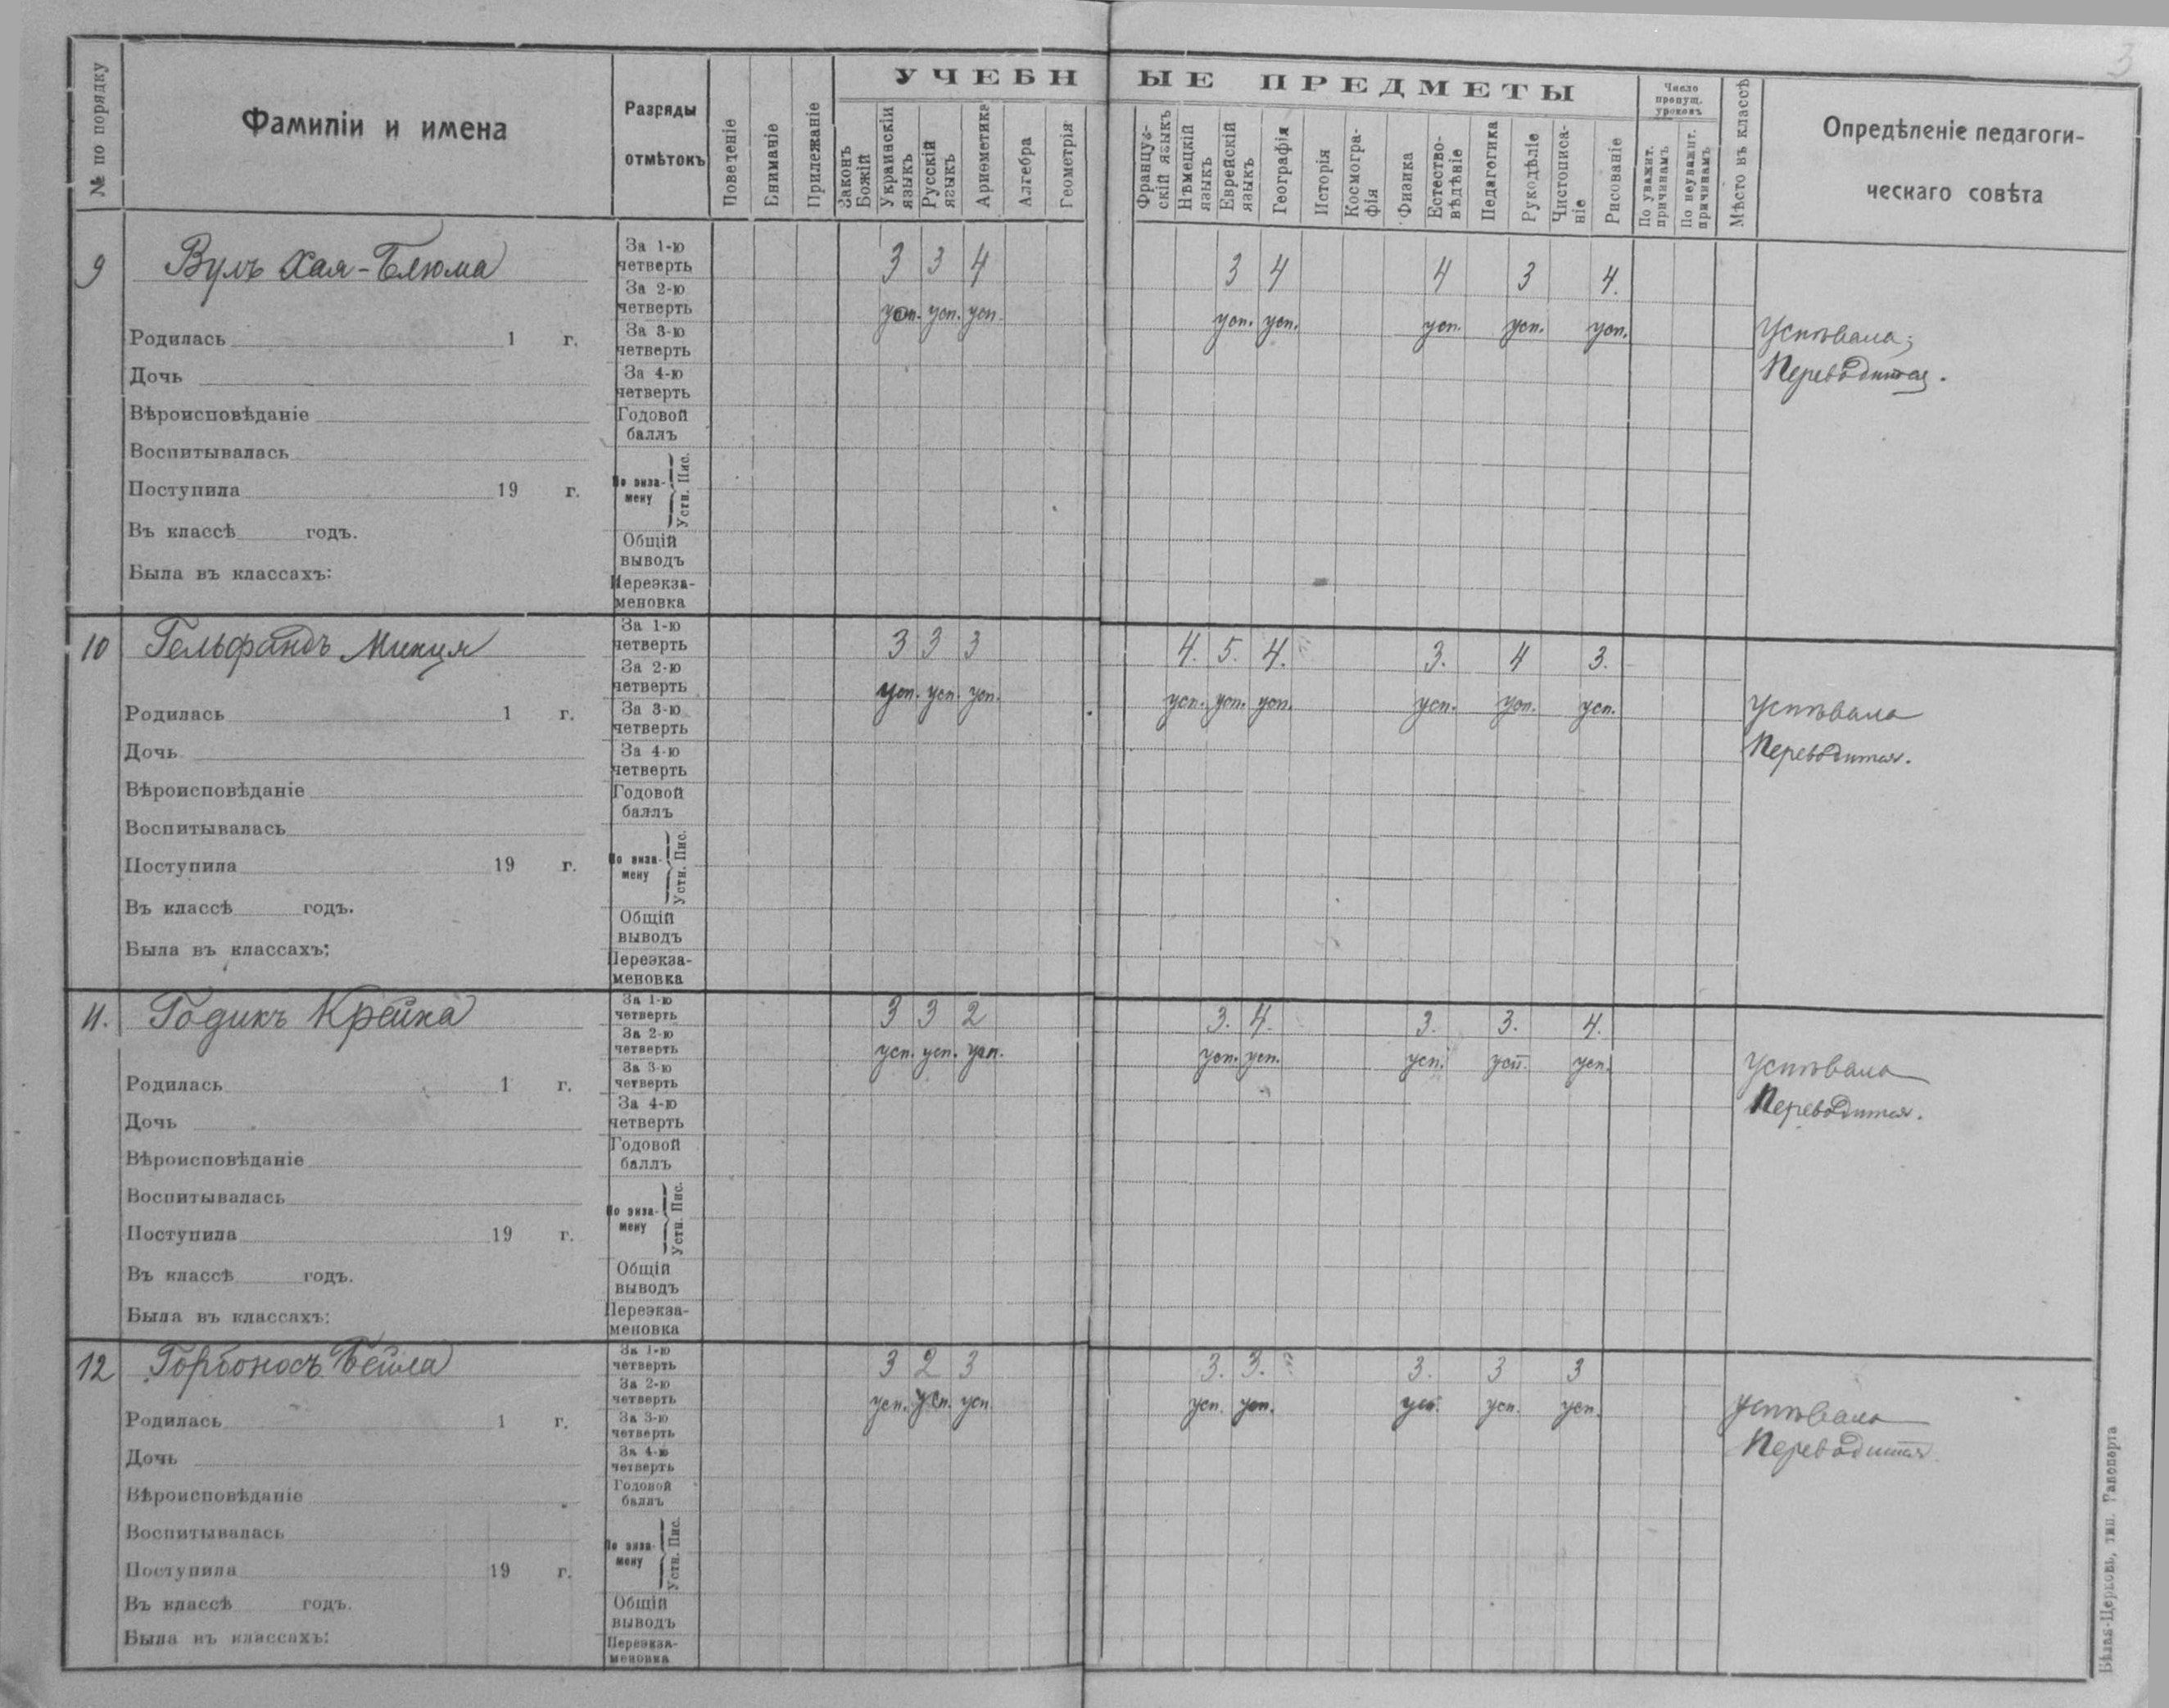 3
№ по порядку
Фамиліи и имена
Разряды
отмѣтокъ
Поведеніе
Вниманіе
Прилежаніе
УЧЕБНЫЕ ПРЕДМЕТЫ
Законъ Божій
Украинскій языкъ
Русскій языкъ
Ариѳметика
Алгебра
Геометрія
Француз-скій языкъ
Нѣмецкій языкъ
Еврейскій языкъ
Географія
Исторія
Космогра-фія
Физика
Естество-вѣдѣніе
Педагогика
Рукодѣліе
Чистописа-ніе
Рисованіе
Число пропущ. уроковъ
По уважит. причинамъ
По неуважит. причинамъ
Мѣсто въ классѣ
Опредѣленіе педагоги-
ческаго совѣта
9 Вулъ Хая-Блюма
Родилась 1 г.
Дочь
Вѣроисповѣданіе
Воспитывалась
Поступила 19 г.
Въ классѣ годъ.
Была въ классахъ:
За 1-ю четверть 3 3 4 3 4 4 3 4.
За 2-ю четверть усп. усп. усп. усп. усп. усп. усп. усп.
За 3-ю четверть
За 4-ю четверть
Годовой баллъ
По экза-мену Устн. Пис.
Общій выводъ
Переэкза-меновка
Успѣвала;
Переводится.
10 Гельфандъ Минця
Родилась 1 г.
Дочь
Вѣроисповѣданіе
Воспитывалась
Поступила 19 г.
Въ классѣ годъ.
Была въ классахъ:
За 1-ю четверть 3 3 3 4. 5. 4. 3. 4 3.
За 2-ю четверть усп. усп. усп. усп. усп. усп. усп. усп. усп.
За 3-ю четверть
За 4-ю четверть
Годовой баллъ
По экза-мену Устн. Пис.
Общій выводъ
Переэкза-меновка
Успѣвала
Переводится.
11. Годикъ Крейна
Родилась 1 г.
Дочь
Вѣроисповѣданіе
Воспитывалась
Поступила 19 г.
Въ классѣ годъ.
Была въ классахъ:
За 1-ю четверть 3 3 2 3. 4. 3. 3. 4.
За 2-ю четверть усп. усп. усп. усп. усп. усп. усп. усп.
За 3-ю четверть
За 4-ю четверть
Годовой баллъ
По экза-мену Устн. Пис.
Общій выводъ
Переэкза-меновка
Успѣвала
Переводится.
12 Горбоносъ Бейла
Родилась 1 г.
Дочь
Вѣроисповѣданіе
Воспитывалась
Поступила 19 г.
Въ классѣ годъ.
Была въ классахъ:
За 1-ю четверть 3 2 3 3. 3. 3. 3 3
За 2-ю четверть усп. усп. усп. усп. усп. усп. усп. усп.
За 3-ю четверть
За 4-ю четверть
Годовой баллъ
По экза-мену Устн. Пис.
Общій выводъ
Переэкза-меновка
Успѣвала
Переводится.
Бѣлая-Церковь, тип. Рапопорта